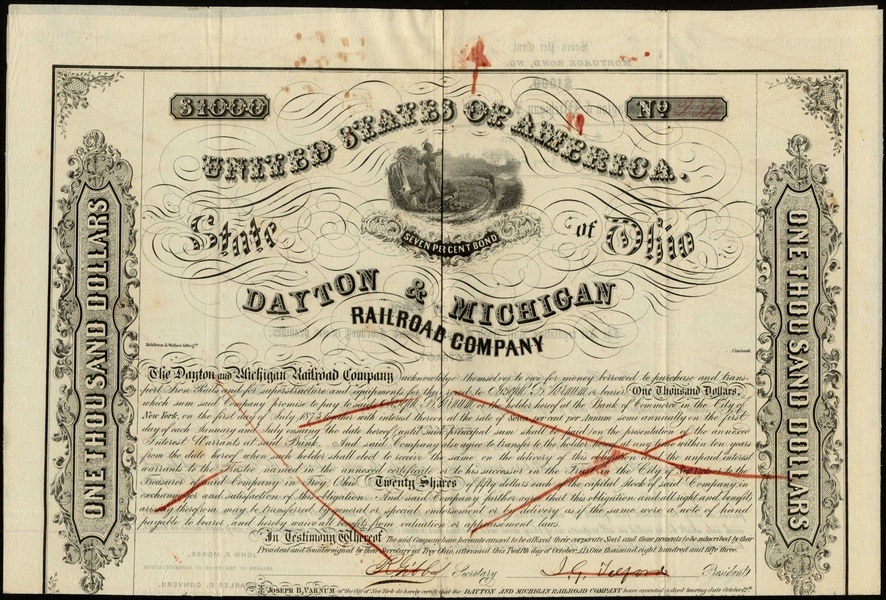 $1000
No 234
UNITED STATES OF AMERICA.
State of Ohio
SEVEN PR CENT BOND
DAYTON & MICHIGAN
RAILROAD COMPANY
ONE THOUSAND DOLLARS
ONE THOUSAND DOLLARS
Cincinnati
The Dayton and Michigan Railroad Company acknowledge themselves to owe for money borrowed to purchase and trans-
port Iron Rails and for superstructure and equipments for the Joseph B. Varnum or bearer One Thousand Dollars,
which sum said Company promise to pay to said Joseph B. Varnum or the holder hereof at the Bank of Commerce in the City of
New York, on the first day of July 1873 with interest thereon at the rate of seven per cent per Annum semi annually on the first
day of each January and July ensuing the date hereof until said principal sum shall and on the presentation of the annexed
Interest Warrants at said Bank. And said Company also agree to transfer to the at any time within ten years
from the date hereof when such holder shall elect to receive the same on the delivery of this obligation and the unpaid interest
warrants to the Trustee named in the annexed certificate or to his successor in the Trust in the City to the
Treasurer of said Company in Troy Ohio Twenty Shares of fifty dollars each in capital stock of said Company in
exchange and satisfaction of this obligation. And said Company further agree that this obligation and all right and benefits
arising therefrom may be transferred by general or special endorsement or by delivery as if the same were a note of hand
payable to bearer, and hereby waive all benefit from valuation or appraisement laws.
In Testimony Whereof The said Company have hereunto caused to be affixed their corporate Seal and these presents to be subscribed by their
President and Countersigned by their Secretary at Troy Ohio, aforesaid this Twelfth day of October, A.D. One thousand eight hundred and fifty three.
Secretary J. G. Telford President
JOSEPH B. VARNUM of the City of New York do hereby certify that the DAYTON AND MICHIGAN RAILROAD COMPANY have executed a deed bearing date October 12th